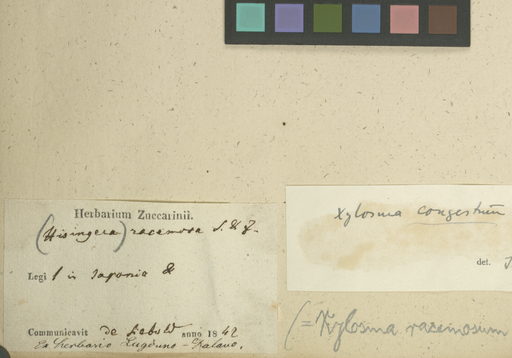 Herbarium Zuccarinii.
(Hisingera) racemosa S. & Z.
Legi in Japonia
Communicavit de Siebold anno 1842
Ex Herbario Lugduno-Batavo.
Xylosma congestum
det. J
(= Xylosma racemosum